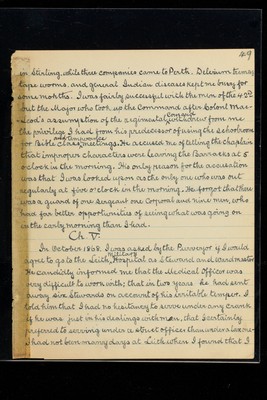 49
in Stirling, while three companies came to Perth. Delirium tremens
tape worms, and general Indian diseases kept me busy for
some months. I was fairly successful with the men of the 42nd
but the Major who took up the Command after Colonel Mac-
leod's assumption of the regimental withdrew from me
the privilege I had from his predecessor of using the schoolroom
and Temperance
for Bible class, meetings. He accused me of telling the chaplain
that improper characters were leaving the Barracks at 5
o'clock in the morning. His only reason for the accusation
was that I was looked upon as the only one who was out
regularly at five o'clock in the morning. He forgot that there
was a guard of one Sergeant one Corporal and nine men, who
had far better opportunities of seeing what was going on
in the early morning than I had.
Ch V.
In October 1868. I was asked by the Purveyor if I would
Military
agree to go to the Leith Hospital as Steward and Wardmaster
He candidly informed me that the Medical Officer was
very difficult to work with; that in two years he had sent
away six Stewards on account of his irritable temper. I
told him that I had no hesitancy to serve under any crank
if he was just in his dealings with men, that I certainly
preferred to serving under a strict officer than under a lax one.
I had not been many days at Leith when I found that I